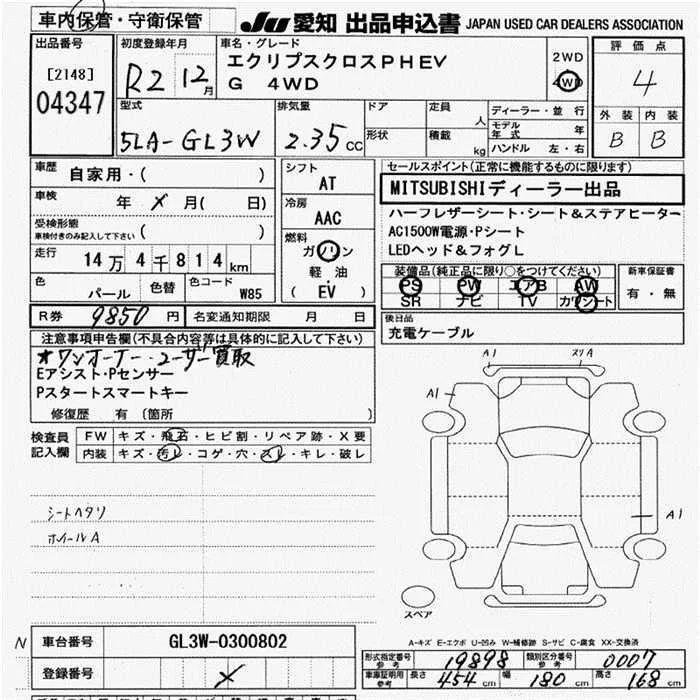 車内保管・守衛保管
JU 愛知 出品申込書 JAPAN USED CAR DEALERS ASSOCIATION
出品番号
[2148]
04347
初度登録年月
R2 12月
車名・グレード
エクリプスクロスPHEV
G 4WD
2WD
4WD
評価点
4
外装 内装
B B
型式
5LA-GL3W
排気量
2.35 CC
ドア
形状
定員 人
積載 kg
ディーラー・並行
モデル年式 年
ハンドル 左・右
車歴
自家用・( )
車検
年 メ 月( 日)
受検形態
車検付きのみ記入して下さい ( )
走行
14万4千814km
色
パール
色替
色コード
W85
シフト
AT
冷房
AAC
燃料
ガソリン
軽油
( EV )
セールスポイント(正常に機能するものに限ります)
MITSUBISHIディーラー出品
ハーフレザーシート・シート&ステアヒーター
AC1500W電源・Pシート
LEDヘッド&フォグL
装備品(純正品に限り○をつけてください)
PS PW エアB AW
SR ナビ TV カワシート
新車保証書
有・無
R券 9850円
名変通知期限 月 日
後日品
充電ケーブル
注意事項申告欄(不具合内容等は具体的に記入して下さい)
★ワンオーナー・ユーザー買取
Eアシスト・Pセンサー
Pスタートスマートキー
修復歴 有(箇所 )
検査員記入欄
FW キズ・飛石・ヒビ割・リペア跡・X要
内装 キズ・汚レ・コゲ・穴・スレ・キレ・破レ
シートヘタリ
ホイールA
A1
スリA
A1
A1
スペア
A-キズ E-エクボ U-凹み W-補修跡 S-サビ C-腐食 XX-交換済
N
車台番号 GL3W-0300802
登録番号 メ
形式指定番号 参考 19898
類別区分番号 参考 0007
車庫証明用 参考 長さ 454cm 幅 180cm 高さ 168cm